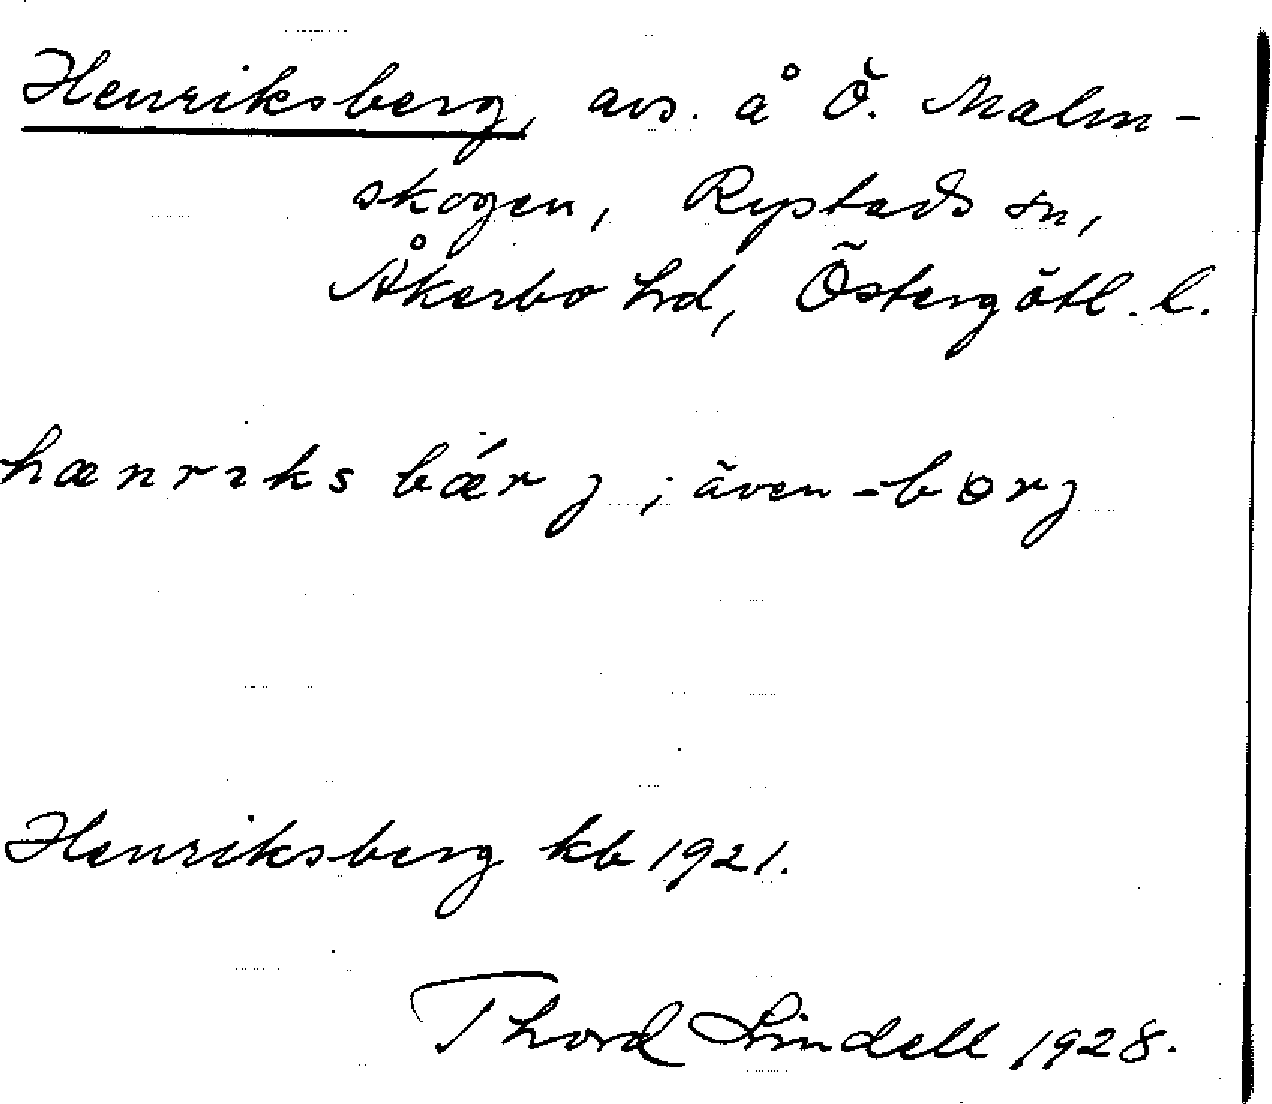 Henriksberg, avs. å Ö. Malm-
skogen, Rystads sn,
Åkerbo hd, Östergötl. l.
hænrıks bǽrj ; även -bɵrj
Henriksberg kb 1921.
Thord Lindell 1928.